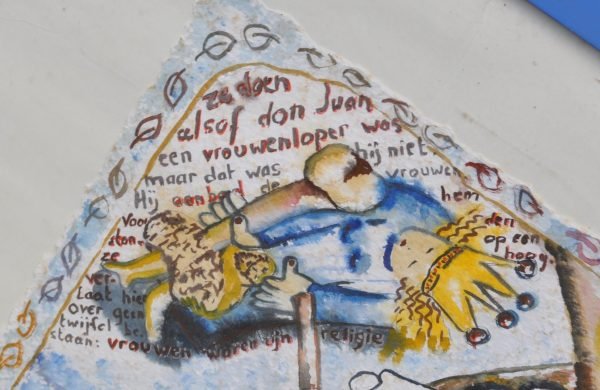 ze doen
alsof don Juan
een vrouwenloper was
maar dat was hij niet.
Hij aanbad de vrouwen.
Voor hem
ston- den
ze op een
hoog.
ver-
laat hier
over geen
twijfel be-
staan: vrouwen waren zijn religie